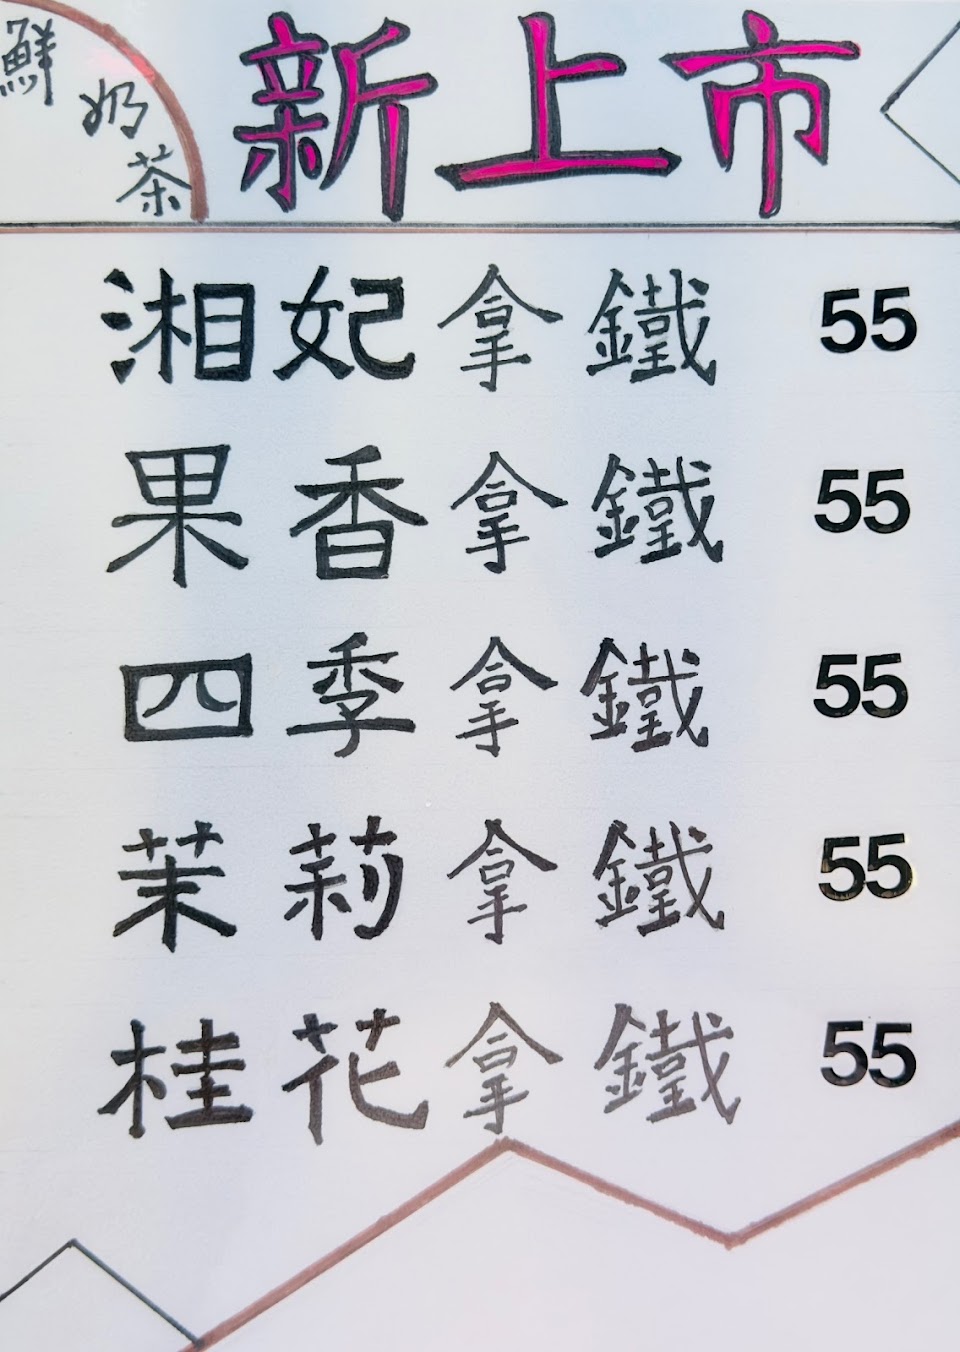 鮮奶茶
新上市
湘妃拿鐵 55
果香拿鐵 55
四季拿鐵 55
茉莉拿鐵 55
桂花拿鐵 55